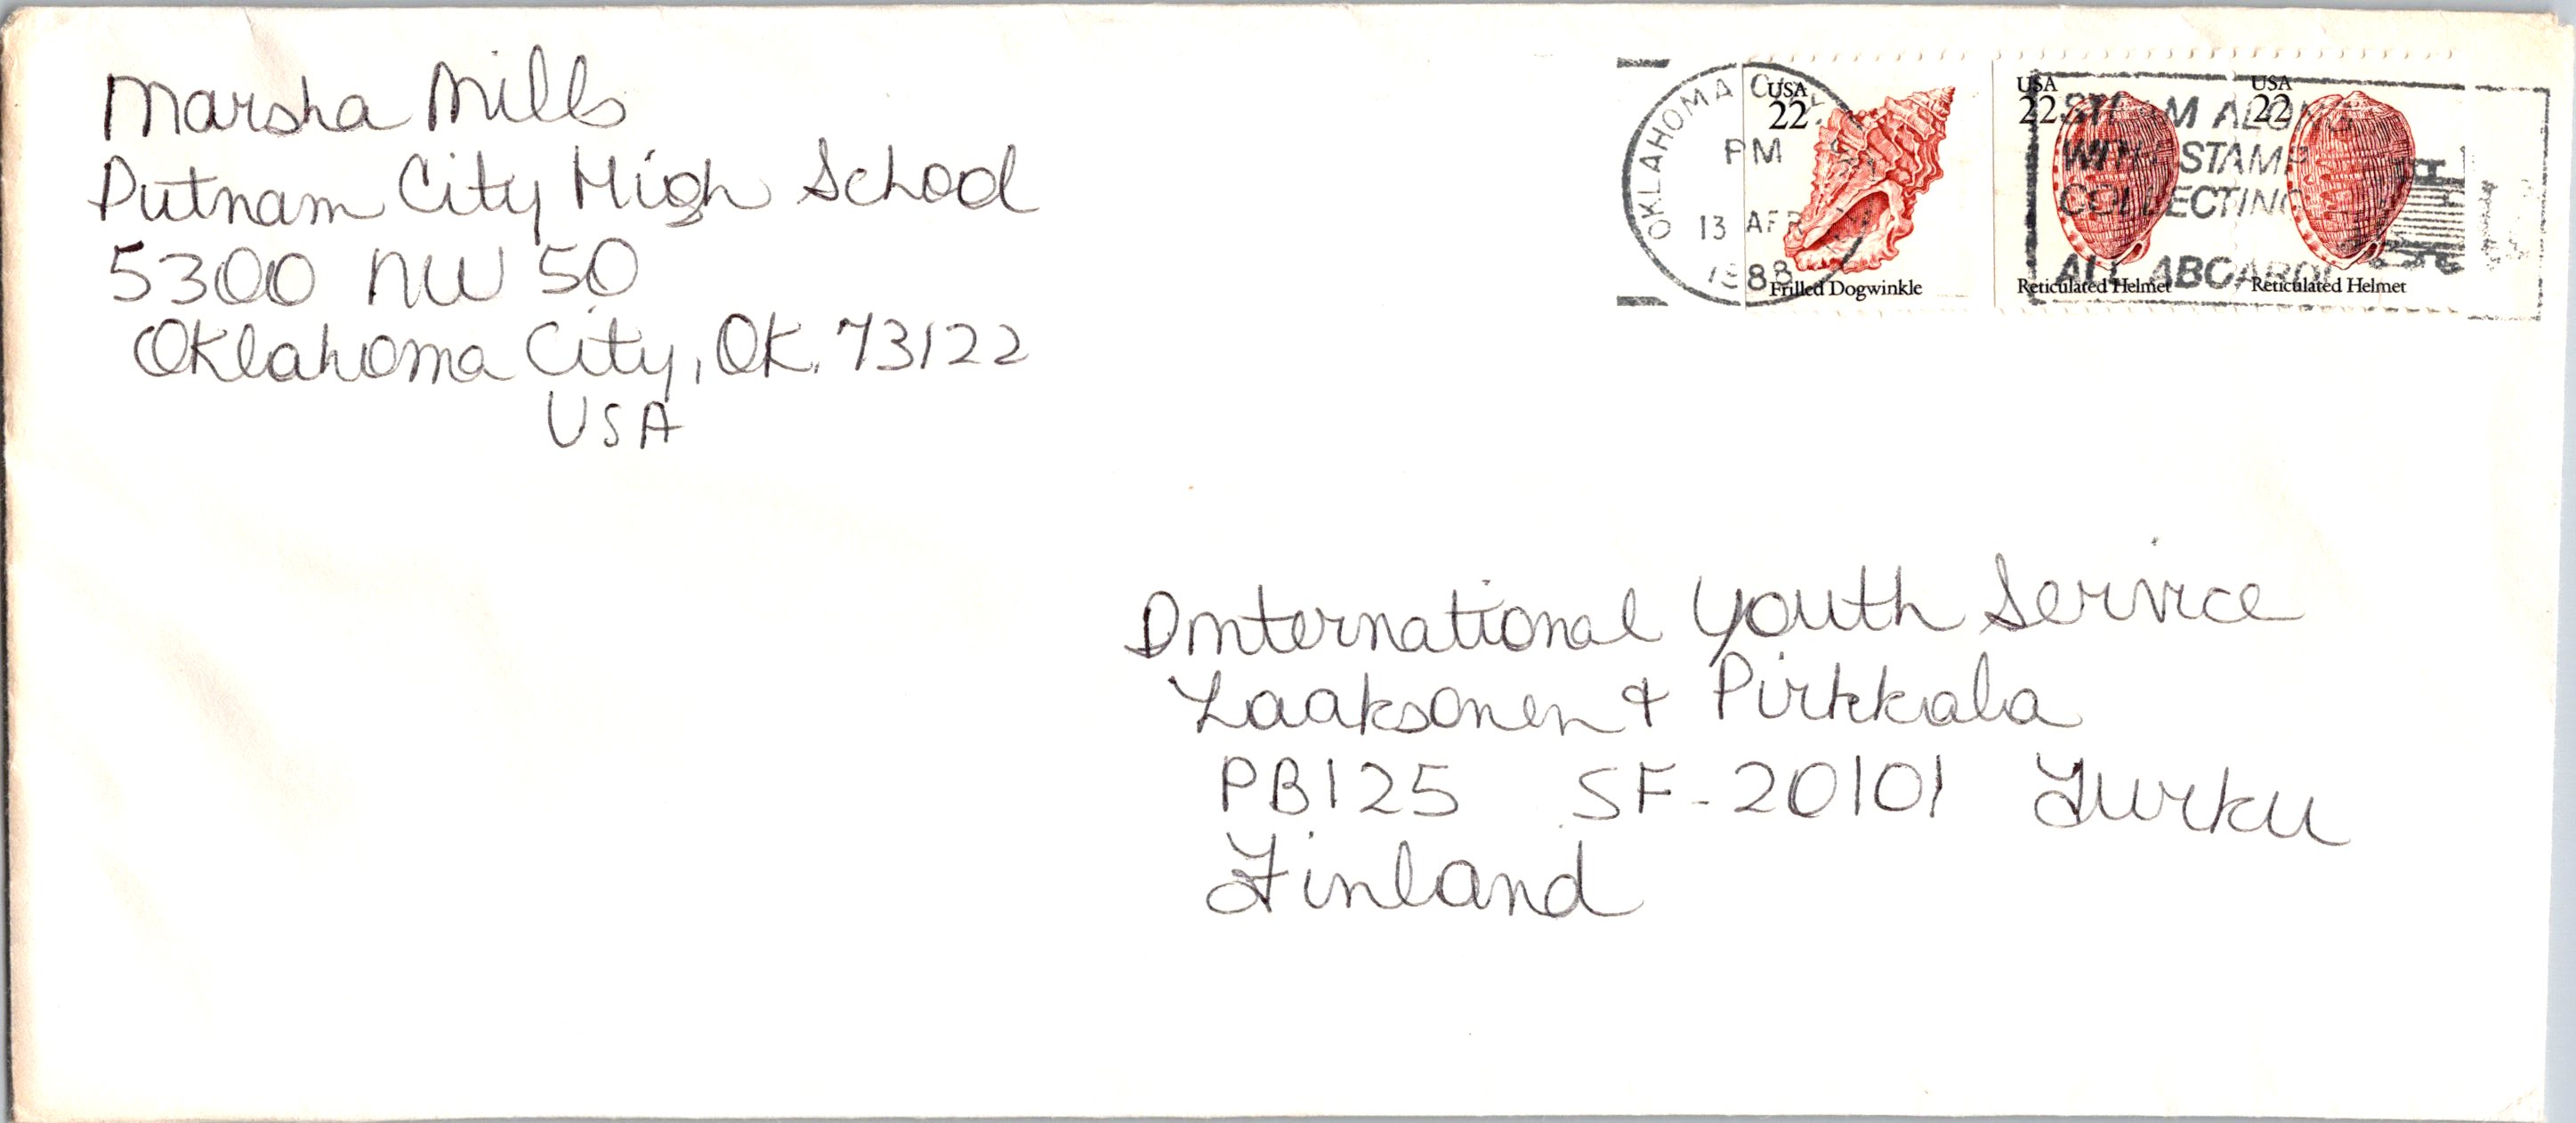 Marsha Mills
Putnam City High School
5300 NW 50
Oklahoma City, OK. 73122
USA
OKLAHOMA
PM
13 APR
1988
USA
22
Frilled Dogwinkle
USA
22
Reticulated Helmet
USA
22
Reticulated Helmet
ALONG
WITH STAMP
COLLECTING
ALL ABOARD!
International Youth Service
Laaksonen & Pirkkala
PB125 SF-20101 Turku
Finland